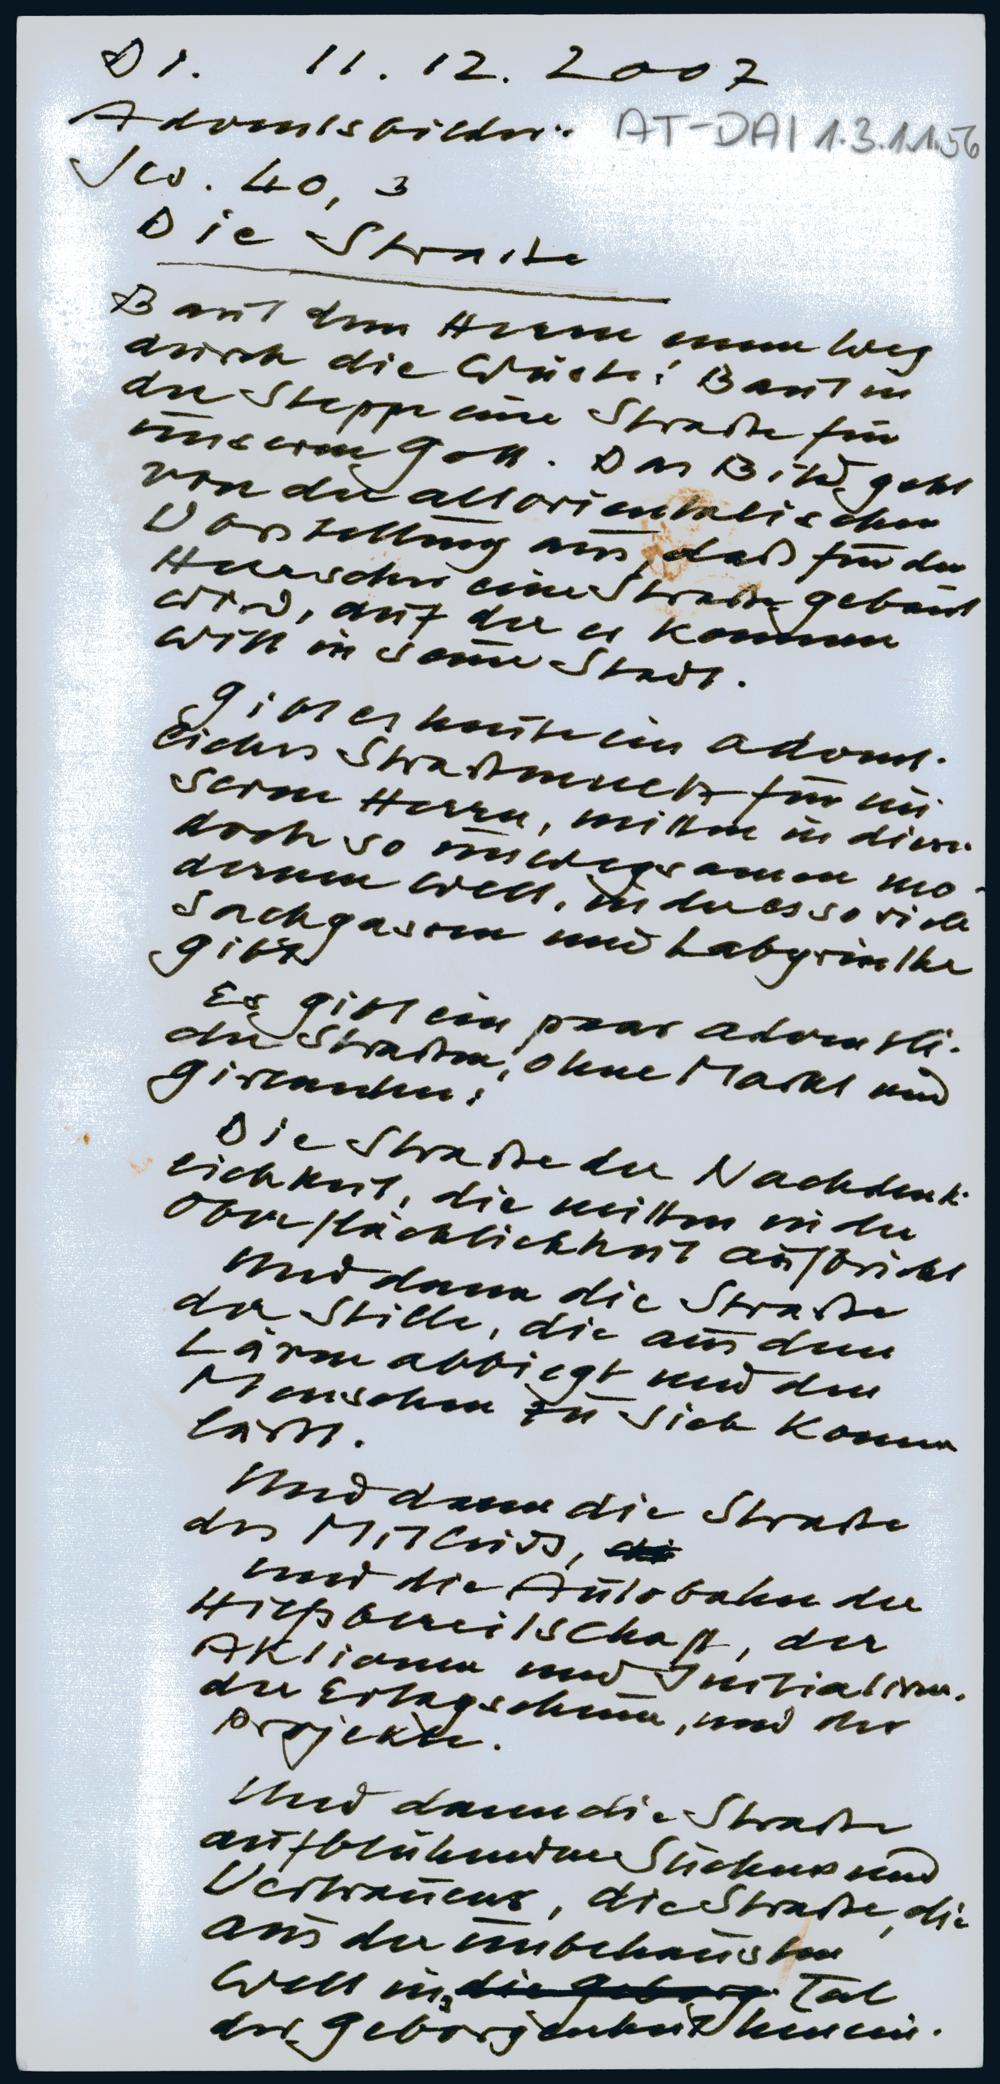 Di. 11.12.2007
Adventsbilder: AT-DAI 1.3.1.1.56
Jes. 40, 3
Die Straße
Baut dem Herrn einen Weg
durch die Wüste! Baut in
der Steppe eine Straße für
unseren Gott. Das Bild geht
von der altorientalischen
Vorstellung aus, daß für den
Herrscher eine Straße gebaut
wird, auf der er kommen
will in seine Stadt.
Gibt es heute ein advent-
liches Straßennetz für un
seren Herrn, mitten in dieser
doch so unwegsamen mo-
dernen Welt, in der es so viele
Sackgassen und Labyrinthe
gibt?
Es gibt ein paar adventli-
che Straßen, ohne Markt und
Girlanden:
Die Straße der Nachdenk-
lichkeit, die mitten in der
Oberflächlichkeit aufbricht
Und dann die Straße
der Stille, die aus dem
Lärm abbiegt und den
Menschen zu sich kommen
läßt.
Und dann die Straße
des Mitleids,
und die Autobahn der
Hilfsbereitschaft, der
Aktionen und Initiativen.
der, und der
Projekte.
Und dann die Straße
aufblühenden Suchens und
Vertrauens, die Straße, die
aus der unbehausten
Welt ins die Geborg. Tal
der Geborgenheit hinein.